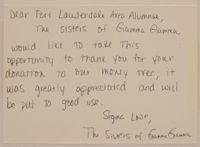 Dear Fort Lauderdale Area Alumna,
The sisters of Gamma Gamma
would like to take this
opportunity to thank you for your
donation to our money tree, it
was greatly appreciated and will
be put to good use.
Sigma Love,
The Sisters of Gamma Gamma